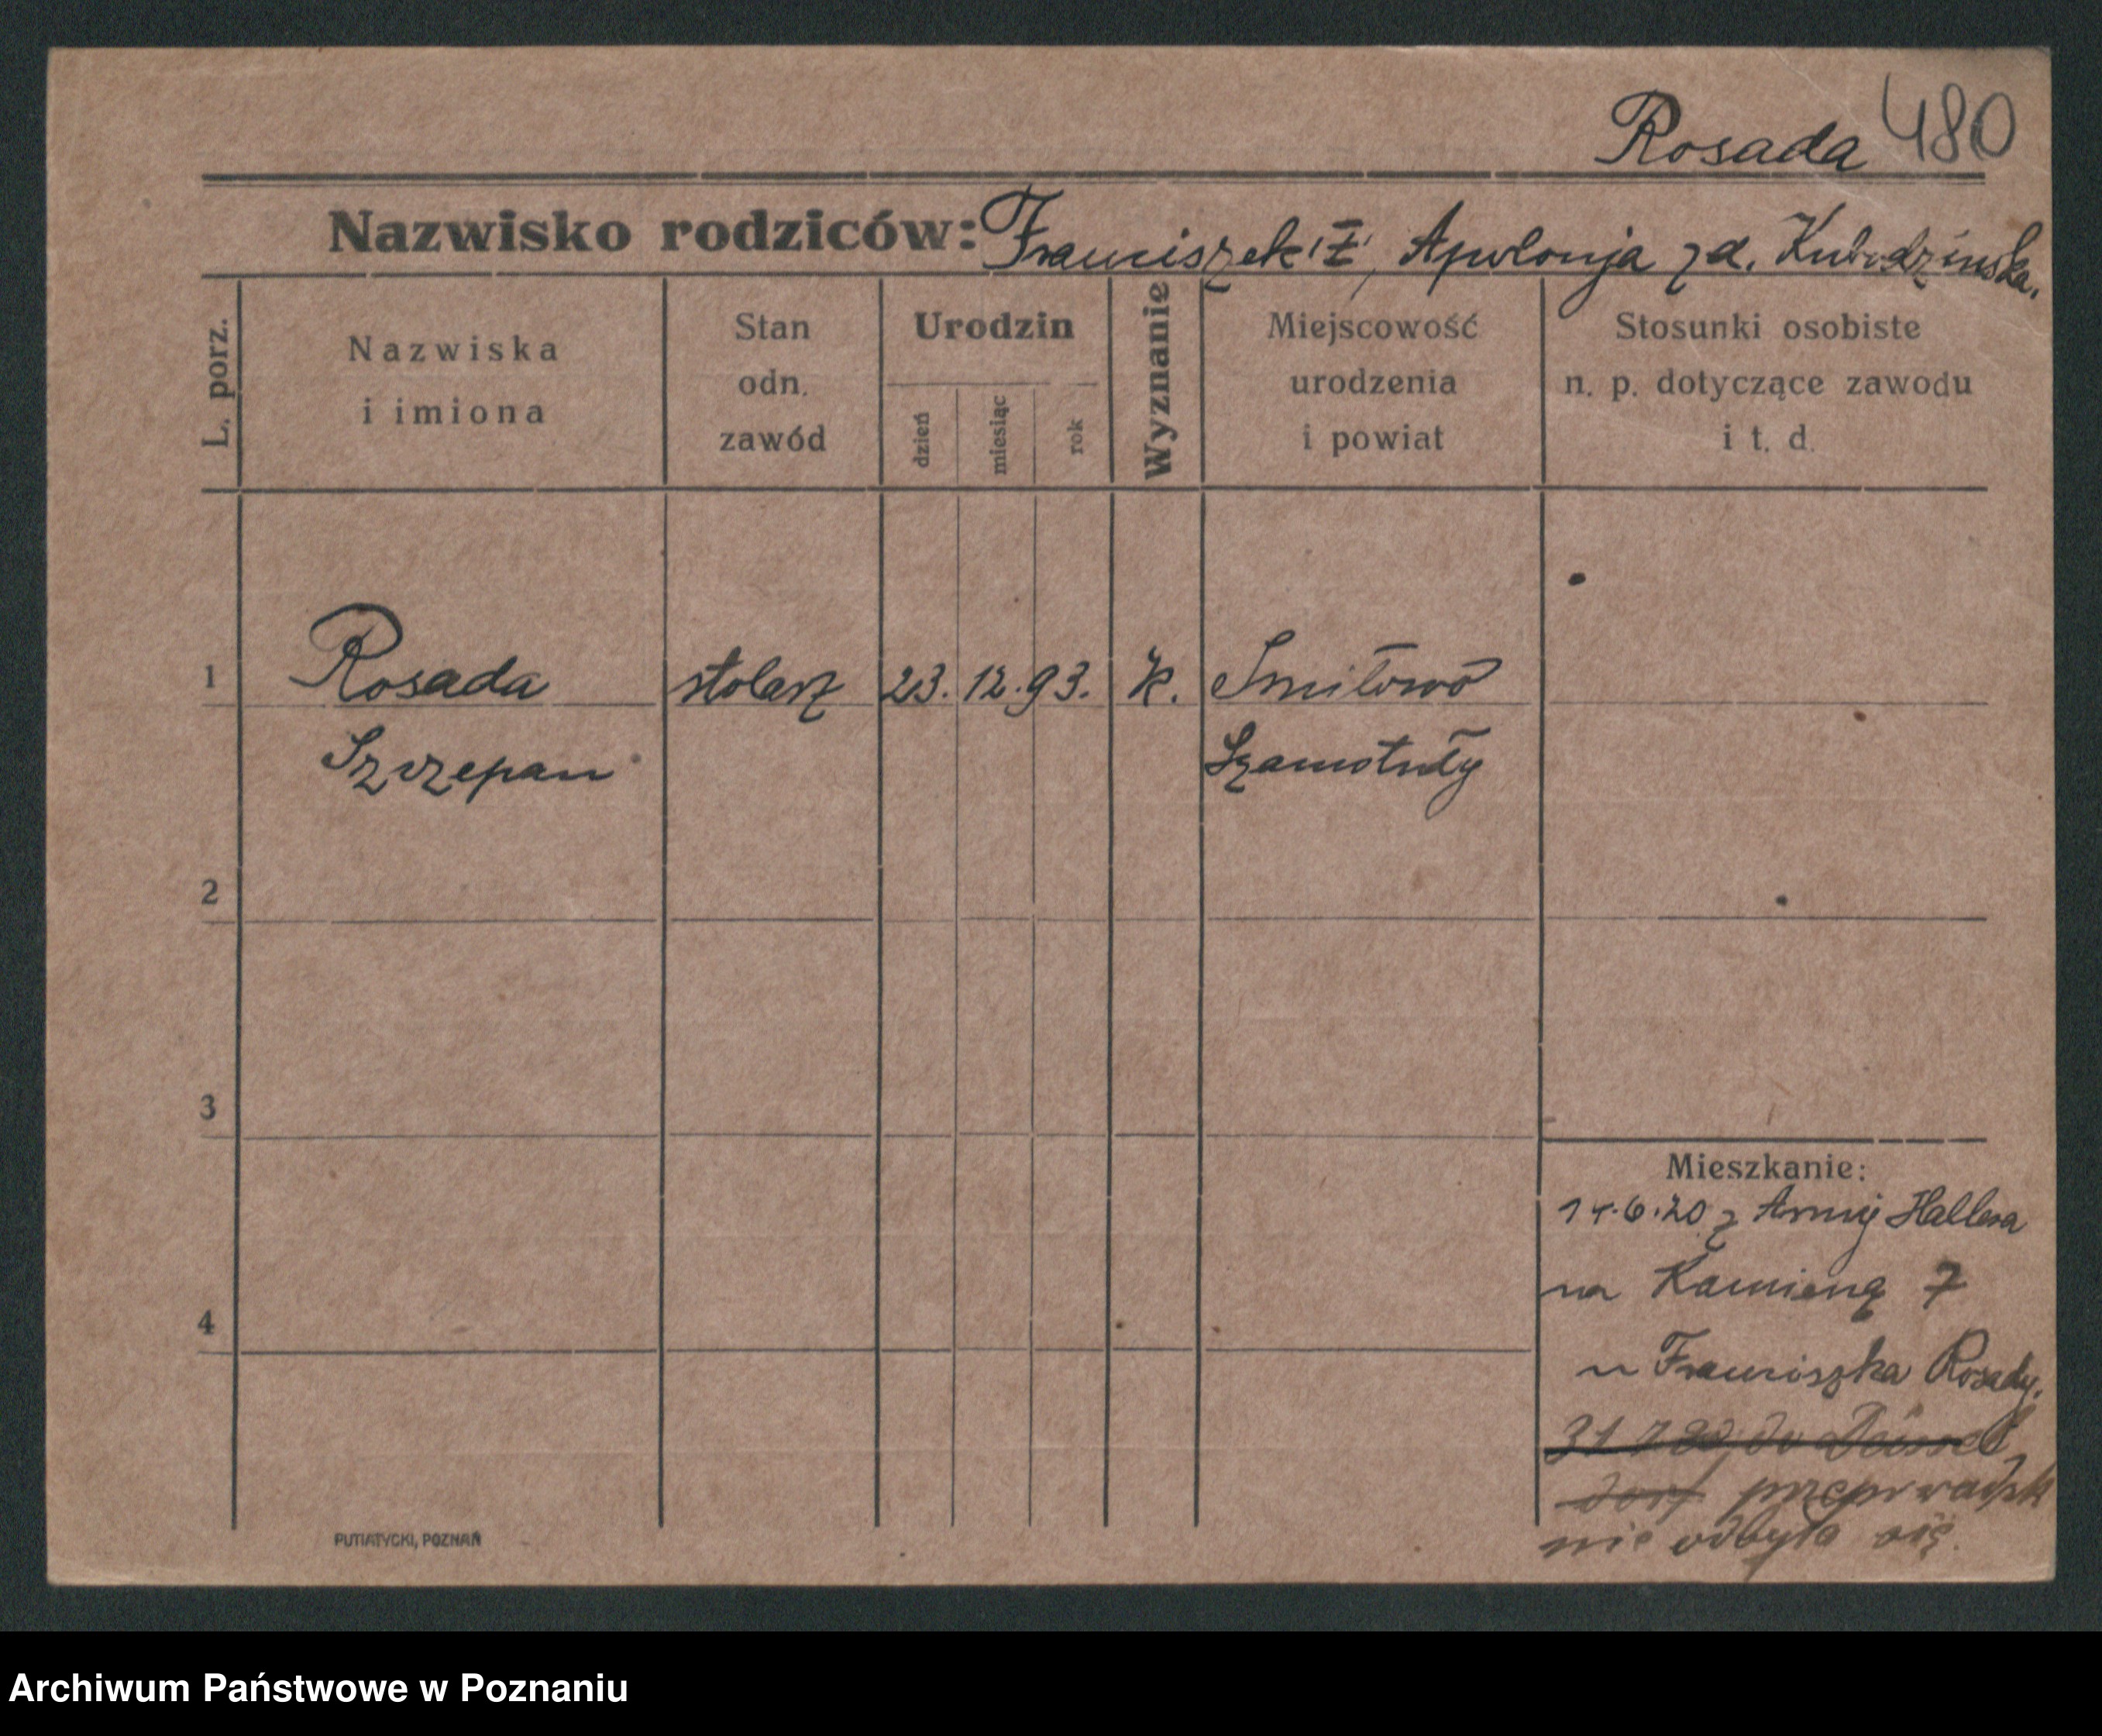 Rosada 480
Nazwisko rodziców: Franciszek "Ż", Apolonja z d. Kubodzińska.
L. porz.
Nazwiska
i imiona
Stan
odn.
zawód
Urodzin
dzień
miesiąc
rok
Wyznanie
Miejscowość
urodzenia
i powiat
Stosunki osobiste
n. p. dotyczące zawodu
i t. d.
1 Rosada stolarz 23. 12. 93. k. Smiłowo
Szczepan Szamotuły
2
3
4
Mieszkanie:
14.6.20 z Armij Hallera
na Kamienną 7
u Franciszka Rosady.
31 7 20 do Düssel
dorf przeprowadzk
nie odbyła się.
PUTIATYCKI, POZNAŃ
Archiwum Państwowe w Poznaniu